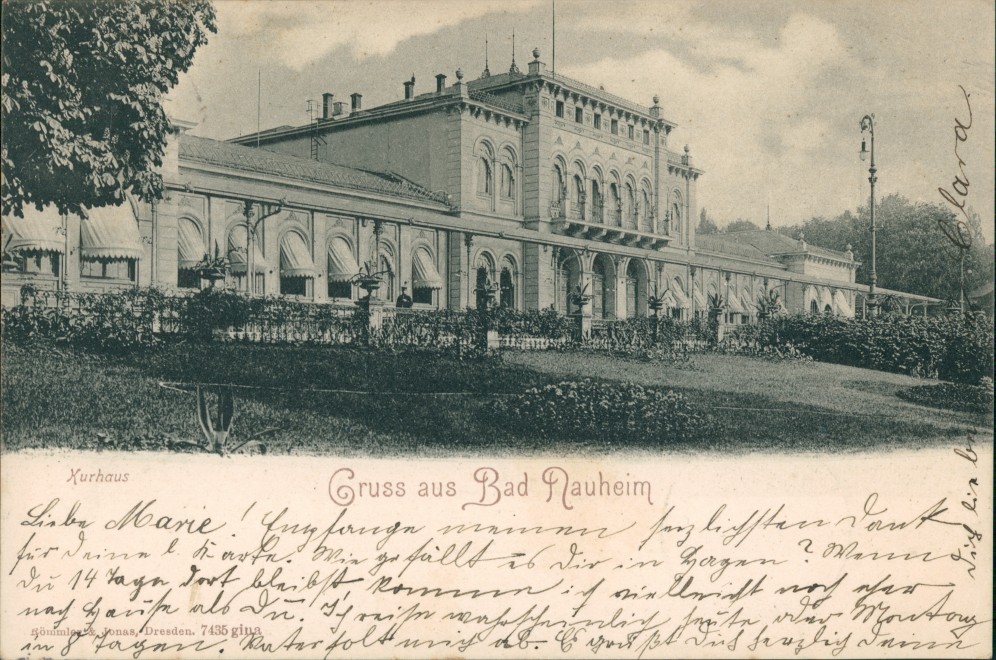 Kurhaus
Gruss aus Bad Nauheim
Liebe Marie! Empfange meinen herzlichsten Dank
für Deine l. Karte. Wie gefällt es Dir in Hagen? Wenn
Du 14 Tage dort bleibst, komme ich vielleicht noch eher
nach Hause als Du! Ich reise wahrscheinlich heute oder Montag
in 8 Tagen. Vater holt mich ab. Es grüßt Dich herzlich Deine
Dich liebende
Clara.
Römmler & Jonas, Dresden. 7435 gina